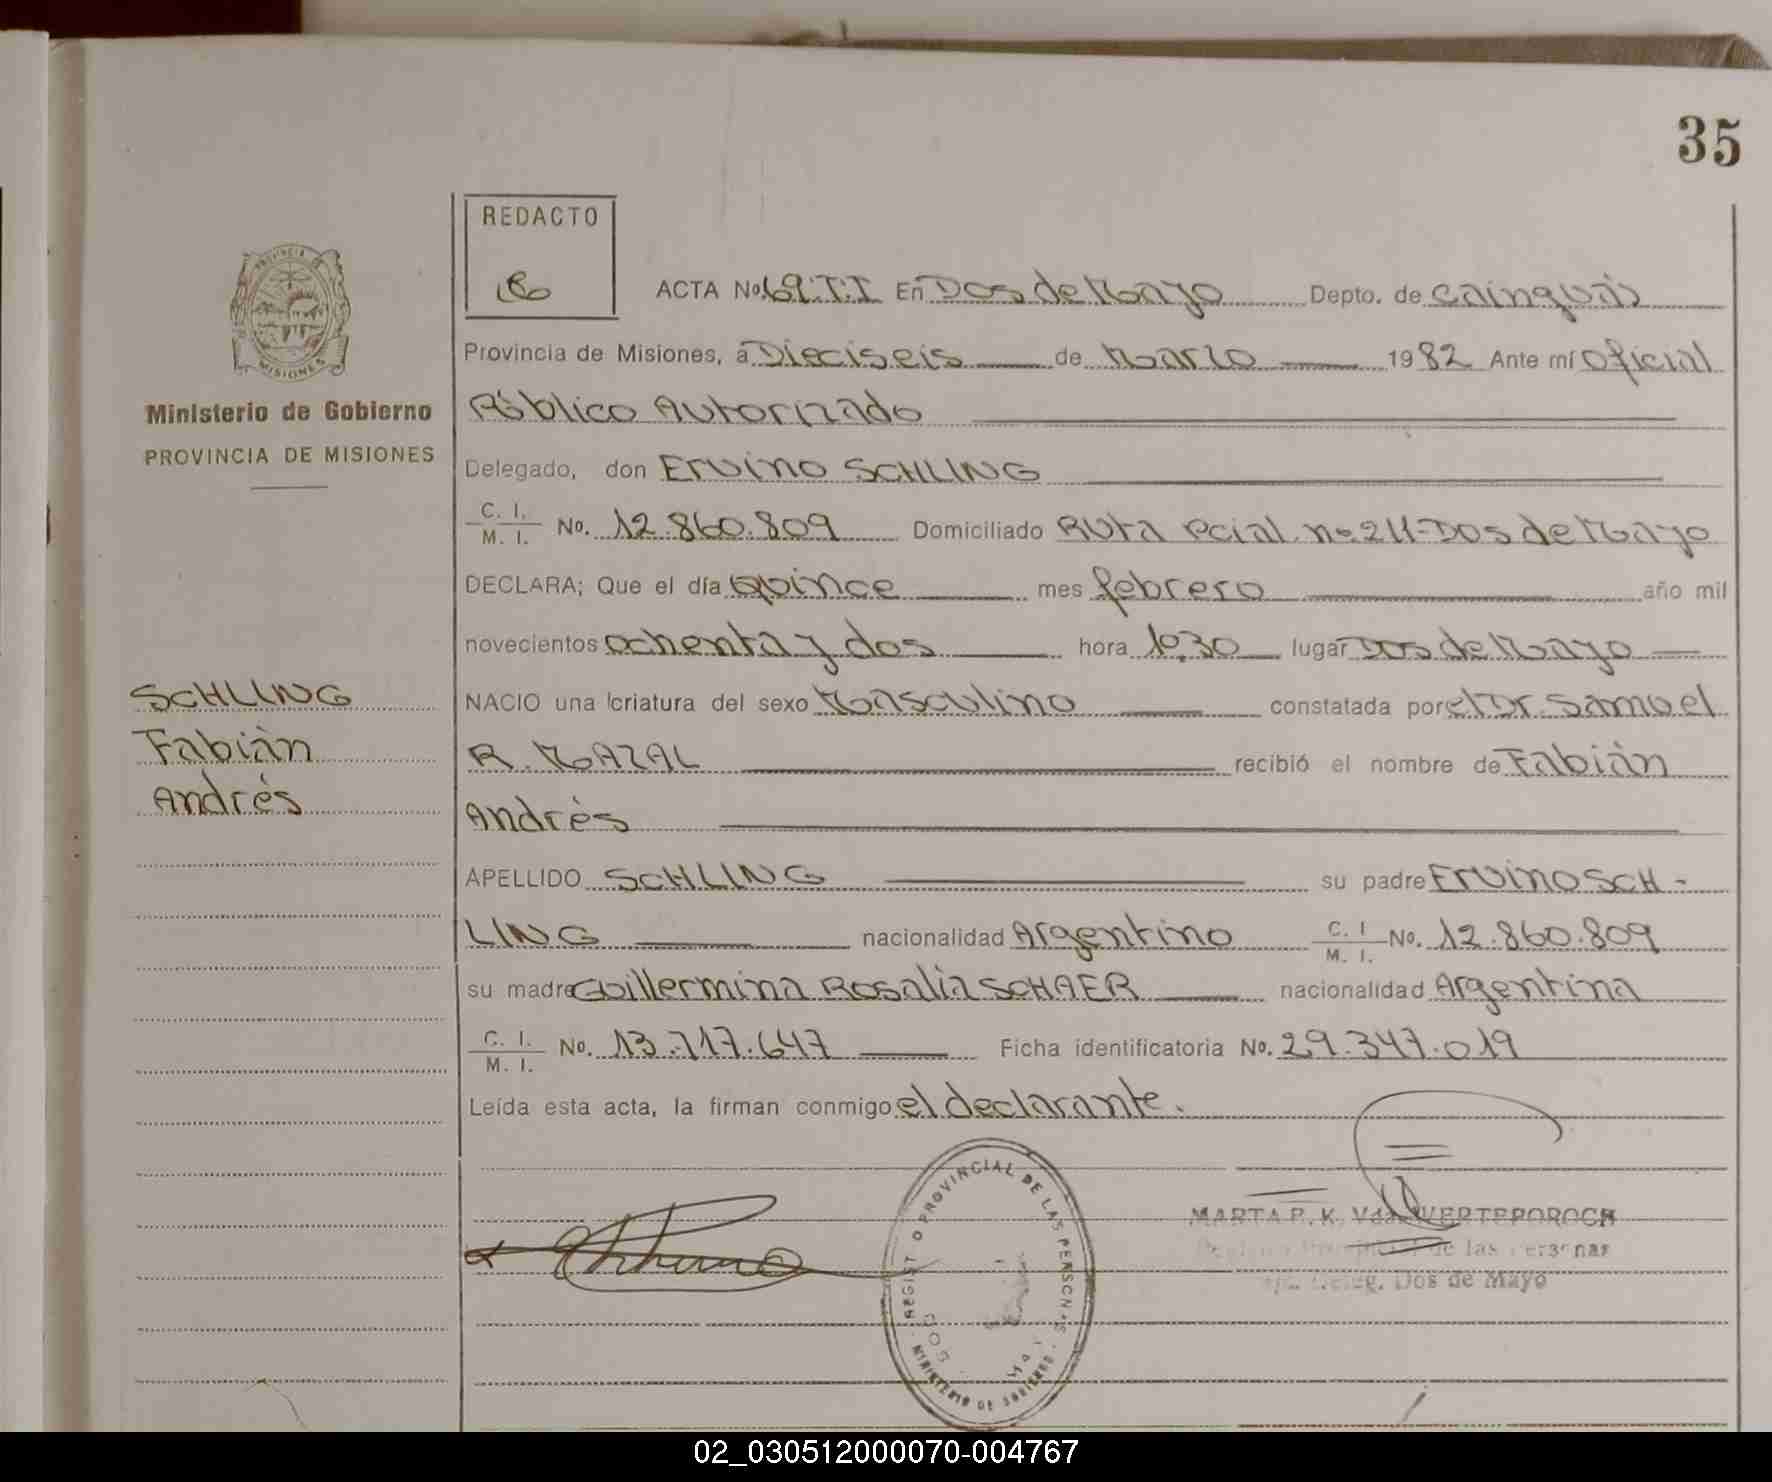 35
REDACTO
ACTA No. 69.T.I En Dos de Mayo Depto. de Cainguás
Provincia de Misiones, a Dieciseis de Marzo 1982 Ante mí Oficial
Público Autorizado
Delegado, don Ervino SCHLING
C. I.
M. I. No. 12.860.809 Domiciliado Ruta Pcial. nº 211-Dos de Mayo
DECLARA; Que el día Quince mes febrero año mil
novecientos ochenta y dos hora 10,30 lugar Dos de Mayo
NACIO una criatura del sexo Masculino constatada por el Dr. Samuel
R. MAZAL recibió el nombre de Fabián
Andrés
APELLIDO SCHLING su padre Ervino SCH-
LING nacionalidad Argentino C. I M. I. No. 12.860.809
su madre Guillermina Rosalía SCHAER nacionalidad Argentina
C. I.
M. I. No. 13.717.647 Ficha identificatoria No. 29.347.019
Leída esta acta, la firman conmigo el declarante.
PROVINCIA DE
MISIONES
Ministerio de Gobierno
PROVINCIA DE MISIONES
SCHLING
Fabián
Andrés
REGISTRO PROVINCIAL DE LAS PERSONAS
MINISTERIO DE GOBIERNO
DOS MAY
MARTA R. K. Vda. WERTEPOROCH
de las Personas
Deleg. Dos de Mayo
02_030512000070-004767